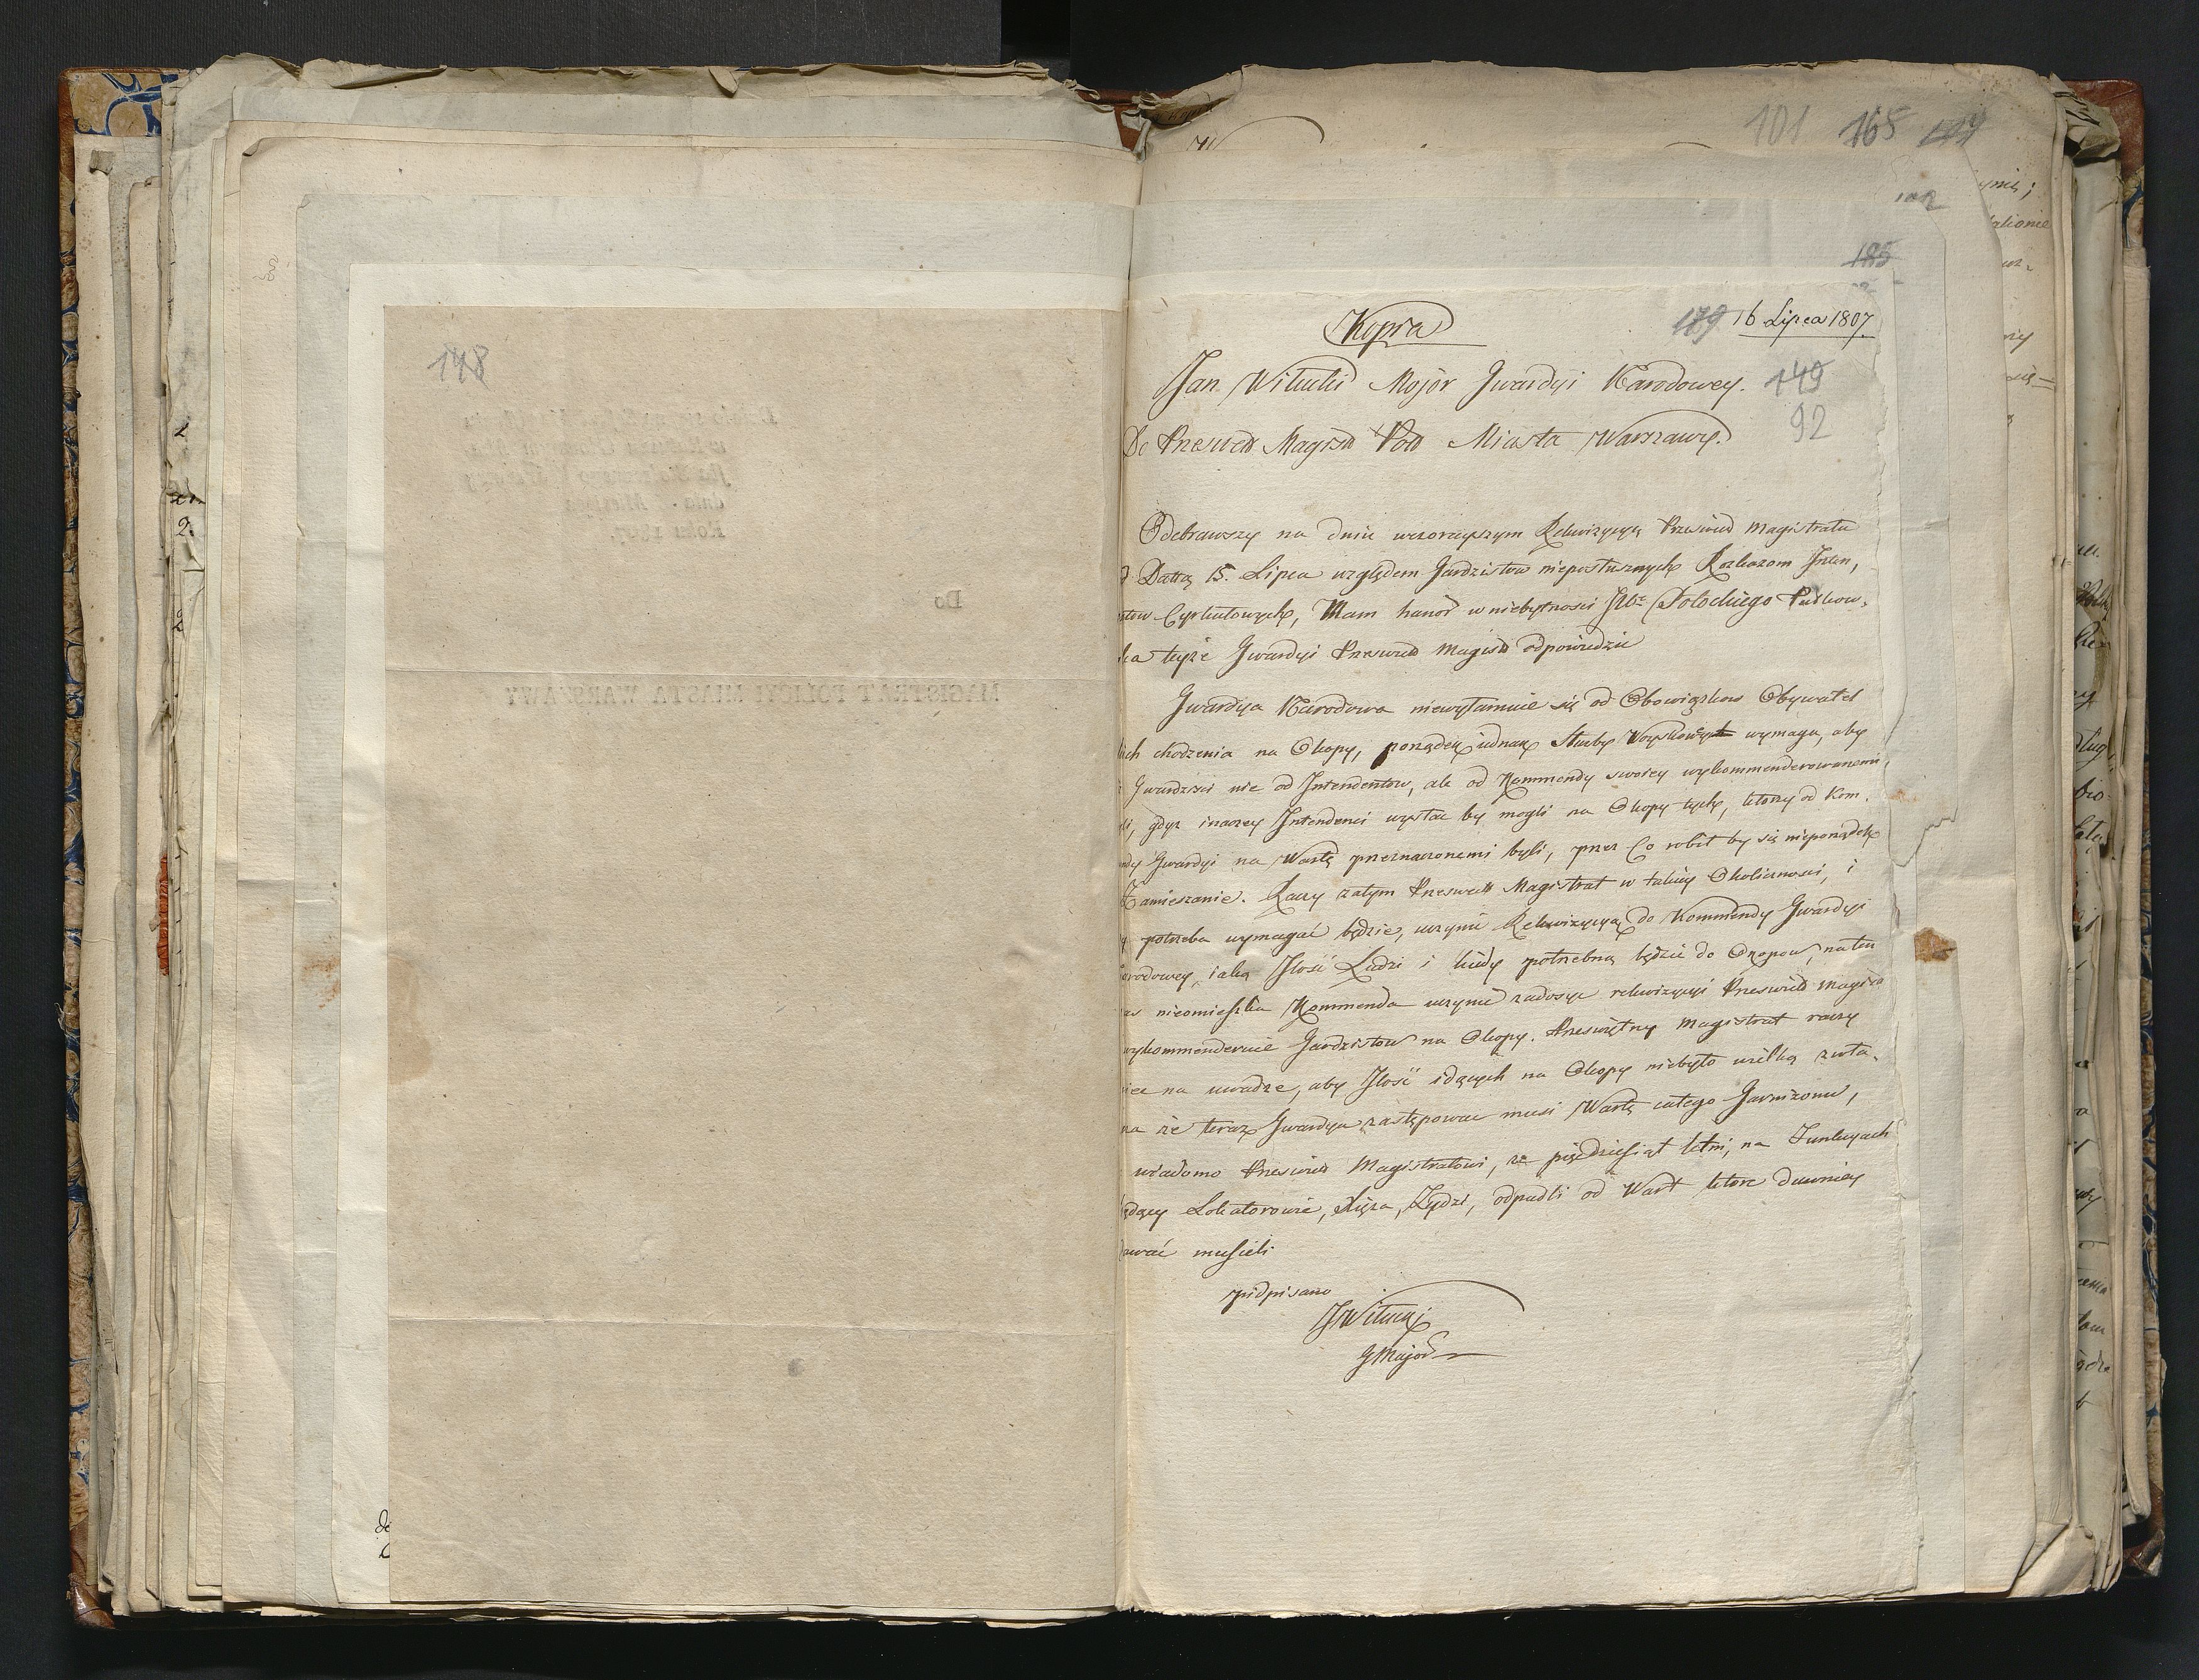 148
Do
MAGISTRAT POLICYI MIASTA WARSZAWY
101 165
102
185
Kopia
179 16 Lipca 1807
Jan Witucki Major Gwardyi Narodowey. 149
92
Do Przeswied Magistr Pol Miasta Warszawy.
Odebrawszy na dniu wczorayszym Rekwizycyą Przeswied Magistratu
d Datą 15. Lipca względem Gardzistow nieposłusznych Rozkazom Inten,
ntow Cyrkułowych, Mam honor w niebytnosci Potockiego Pułkow,
ka teyże Gwardyi Przeswied Magistr odpowiedzić
Gwardya Narodowa niewyłamuie się od Obowiązkow Obywatel
kich chodzenia na Okopy, porządek jednak Służby Woyskowey wymaga, aby
Gwardzisci nie od Intendentow, ale od Kommendy swoiey wykommenderowanemi
li, gdyż inaczey Intendenci wysłac by mogli na Okopy tych, ktorzy od Kom.
ndy Gwardyi na Wartę przeznaczonemi byli, przez Co robił by się nieporządek
Zamieszanie. Raczy zatym Przeswied Magistrat w takiey Okolicznosci, i
y potrzeba wymagać będzie, uczynić Rekwizycyą do Kommendy Gwardyi
arodowey, iaka Ilosć Ludzi i kiedy potrzebną będzie do Okopow, na ten
zas nieomieszka Kommenda uczynić zadosyć rekwizycyi Przeswied Magist
wykommenderuie Gardzistow na Okopy. Przeswiętny Magistrat raczy
miec na uwadze, aby Ilosć idących na Okopy niebyło wielką zwła,
za że teraz Gwardya zastępowac musi Wartę całego Garnizonu,
wiadomo Przeswied Magistratowi, że pięcdziesiąt letni, na Funkcyach
ędący Lokatorowie, Xięża, Żydzi, odpadli od Wart ktore dawniey
dawać musieli
podpisano
JWitucki
GMajor